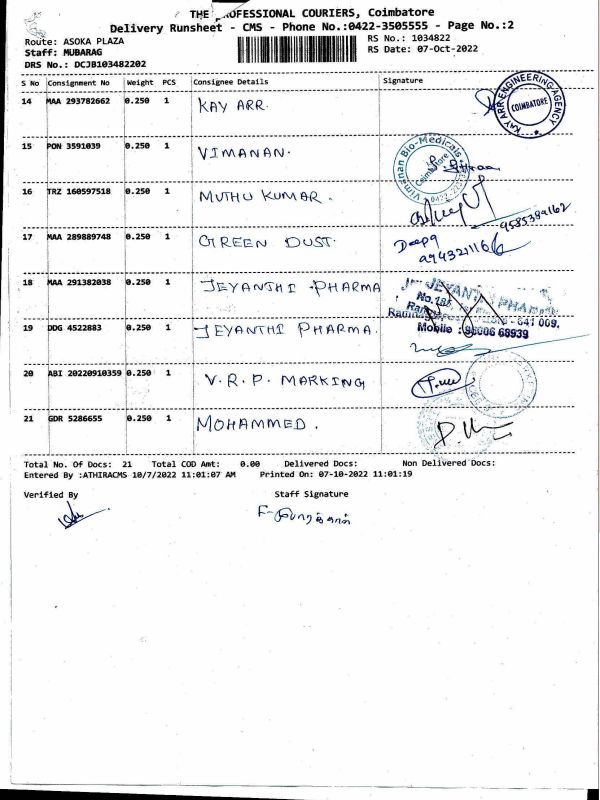 THE PROFESSIONAL COURIERS, Coimbatore
Delivery Runsheet - CMS - Phone No.:0422-3505555 - Page No.:2
Route: ASOKA PLAZA
RS No.: 1034822
Staff: MUBARAG
RS Date: 07-Oct-2022
DRS No.: DCJB103482202
S No Consignment No Weight PCS Consignee Details Signature
14 MAA 293782662 0.250 1 KAY ARR.
KAY ARR ENGINEERING AGENCY
COIMBATORE
15 PON 3591039 0.250 1 VIMANAN.
Vimanan Bio-Medicals
Coimbatore
16 TRZ 160597518 0.250 1 MUTHU KUMAR.
9585389162
17 MAA 289889748 0.250 1 GREEN DUST.
Deepa
18 MAA 291382038 0.250 1 JEYANTHI PHARMA
JEYANTHI PHARMA
641 009.
19 DDG 4522883 0.250 1 JEYANTHI PHARMA.
Mobile :
20 ABI 20220910359 0.250 1 V.R.P. MARKING
21 GDR 5286655 0.250 1 MOHAMMED.
Total No. Of Docs: 21 Total COD Amt: 0.00 Delivered Docs: Non Delivered Docs:
Entered By :ATHIRACMS 10/7/2022 11:01:07 AM Printed On: 07-10-2022 11:01:19
Verified By Staff Signature